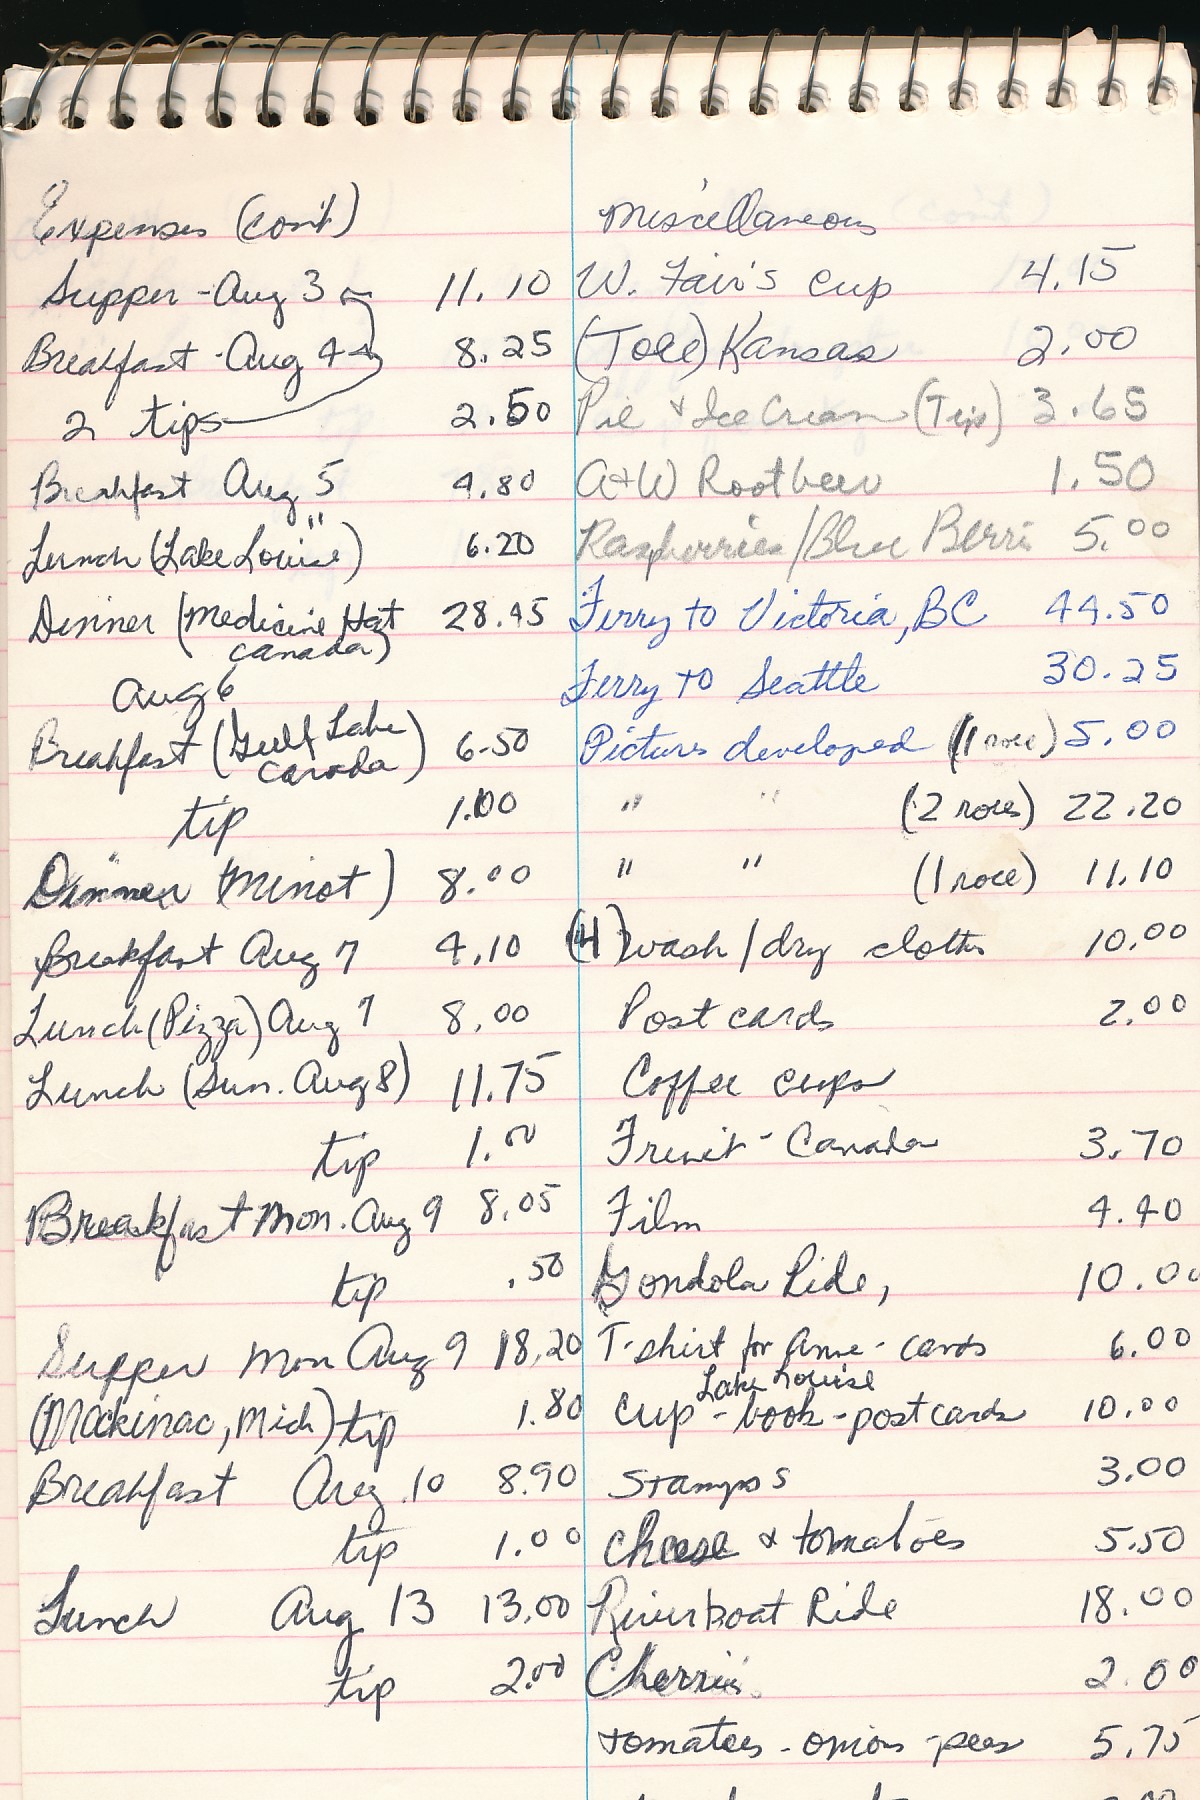 Expenses (con't)
Supper - Aug 3 11.10
Breakfast - Aug 4 8.25
2 tips 2.50
Breakfast Aug 5 4.80
Lunch (Lake Louise) " 6.20
Dinner (Medicine Hat 28.45
Canada)
Aug 6
Breakfast (Gull Lake 6.50
Canada)
tip 1.00
Dinner (Minot) 8.00
Breakfast Aug 7 4.10
Lunch (Pizza) Aug 7 8.00
Lunch (Sun. Aug 8) 11.75
tip 1.00
Breakfast Mon. Aug 9 8.05
tip .50
Supper Mon Aug 9 18.20
(Mackinac, Mich) tip 1.80
Breakfast Aug. 10 8.90
tip 1.00
Lunch Aug 13 13.00
tip 2.00
Miscellaneous
W. Fair's cup 4.15
(Toll) Kansas 2.00
Pie & Ice Cream (Tip) 3.65
A+W Rootbeer 1.50
Raspberries/Blue Berri 5.00
Ferry to Victoria, BC 44.50
Ferry to Seattle 30.25
Pictures developed (1 roll) 5.00
" " (2 rolls) 22.20
" " (1 roll) 11.10
(4) wash/dry cloths 10.00
Post cards 2.00
Coffee cups
Fruit - Canada 3.70
Film 4.40
Gondola Ride, 10.00
T-shirt for Anne - cards 6.00
Lake Louise
cup - book - postcards 10.00
Stamps 3.00
cheese & tomatoes 5.50
Riverboat Ride 18.00
Cherries 2.00
tomatoes - onions - peas 5.75